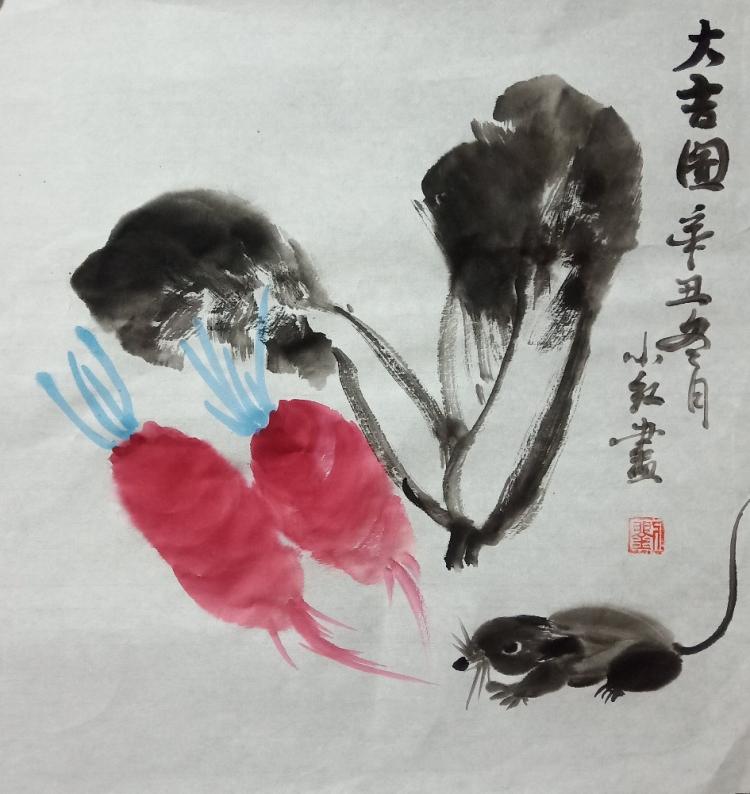 大吉图
辛丑冬月
小红画